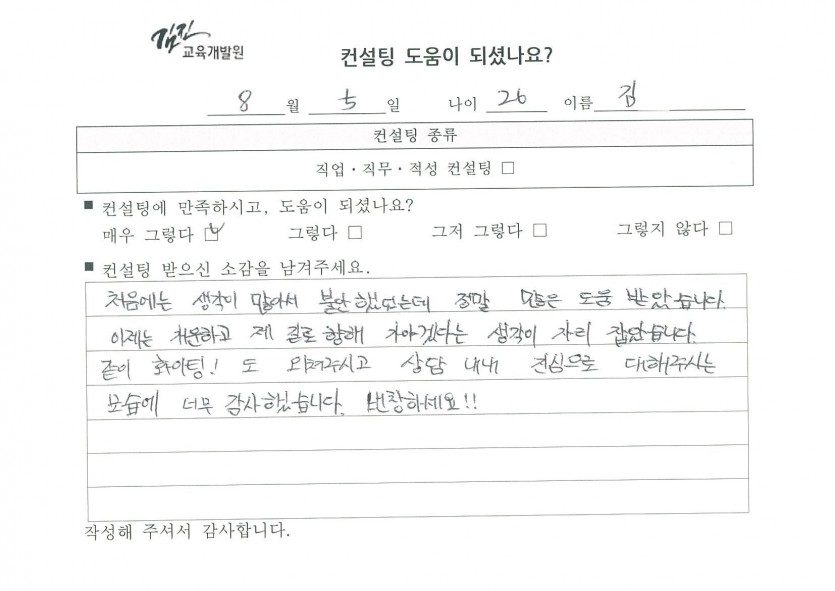 김진
교육개발원
컨설팅 도움이 되셨나요?
8 월 5 일 나이 26 이름 김
컨설팅 종류
직업 · 직무 · 적성 컨설팅 □
■ 컨설팅에 만족하시고, 도움이 되셨나요?
매우 그렇다 ☑ 그렇다 □ 그저 그렇다 □ 그렇지 않다 □
■ 컨설팅 받으신 소감을 남겨주세요.
처음에는 생각이 많아서 불안했었는데 정말 많은 도움 받았습니다.
이제는 차분하고 제 길로 향해 가야겠다는 생각이 자리 잡았습니다.
같이 화이팅! 도 외쳐주시고 상담 내내 진심으로 대해주시는
모습에 너무 감사했습니다. 번창하세요!!
작성해 주셔서 감사합니다.